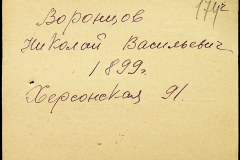 174
Воронцов
Николай Васильевич
1899г.
Херсонская 91.